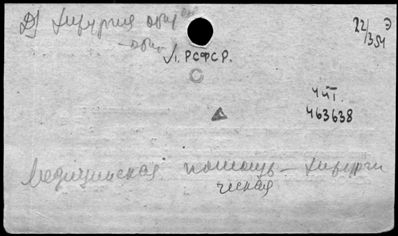 Д) Хирургия общ
22/354 Э
– общ.
Л. РСФСР.
С
чит.
463638
Медицинская помощь – хирурги
ческая